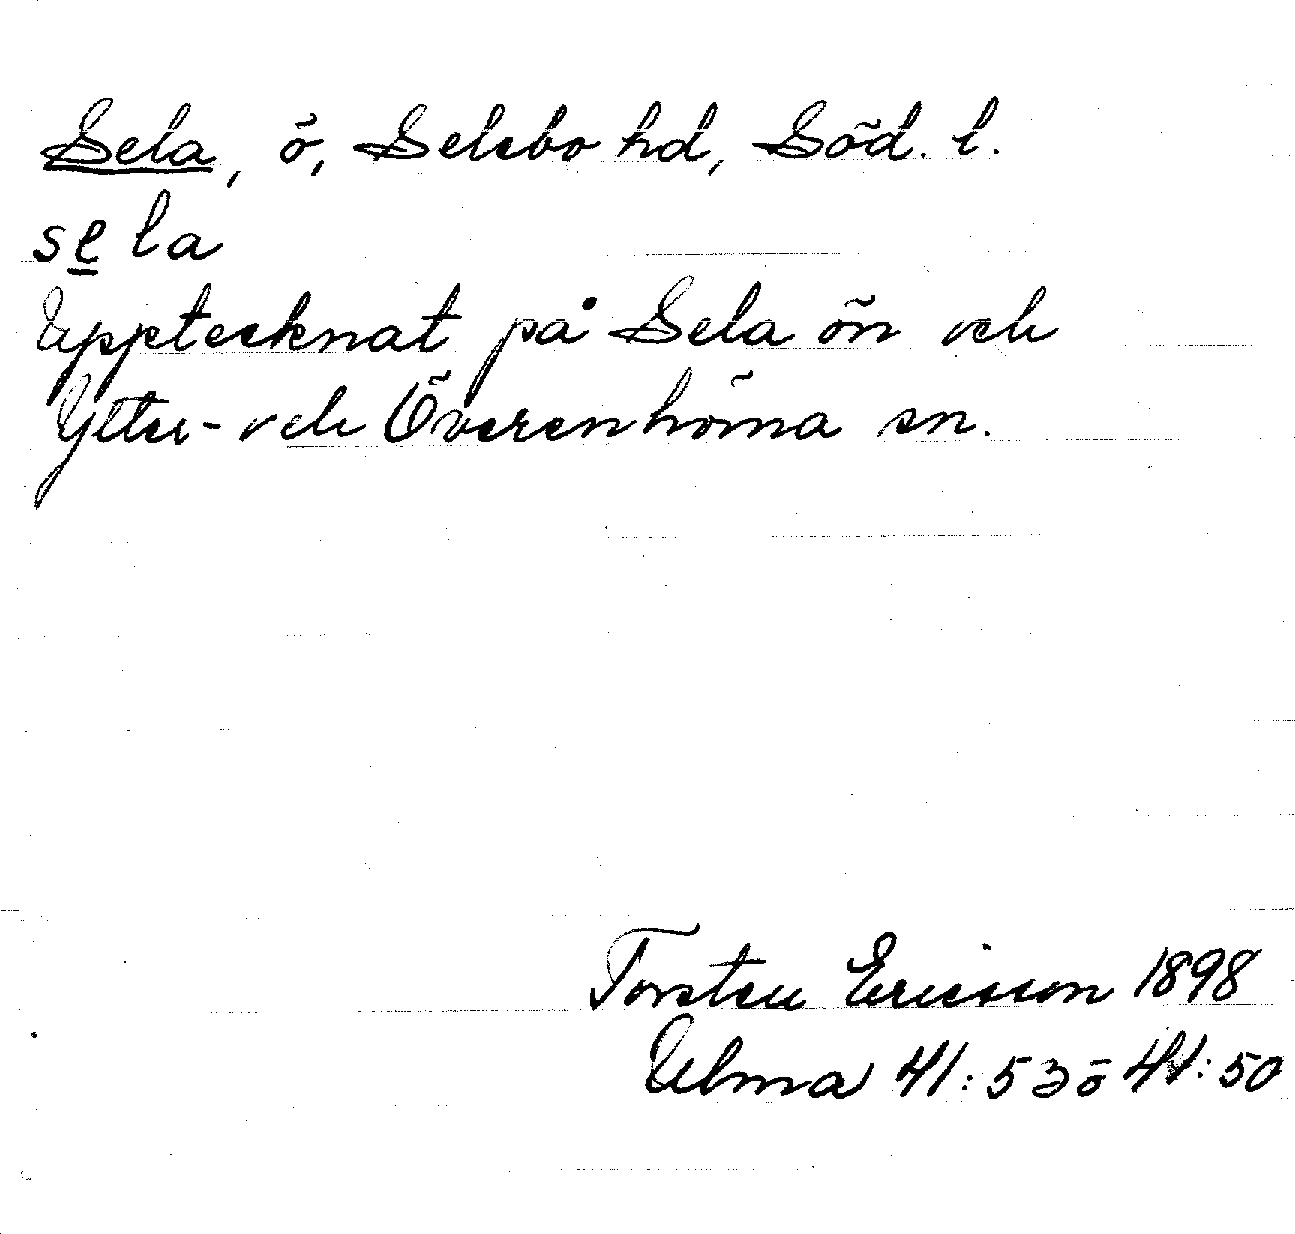 Sela, ö, Selebo hd, Söd. l.
sela
Upptecknat på Sela ön och
Ytter- och Överenhörna sn.
Torsten Ericsson 1898
Ulma 41:53 ö 41:50